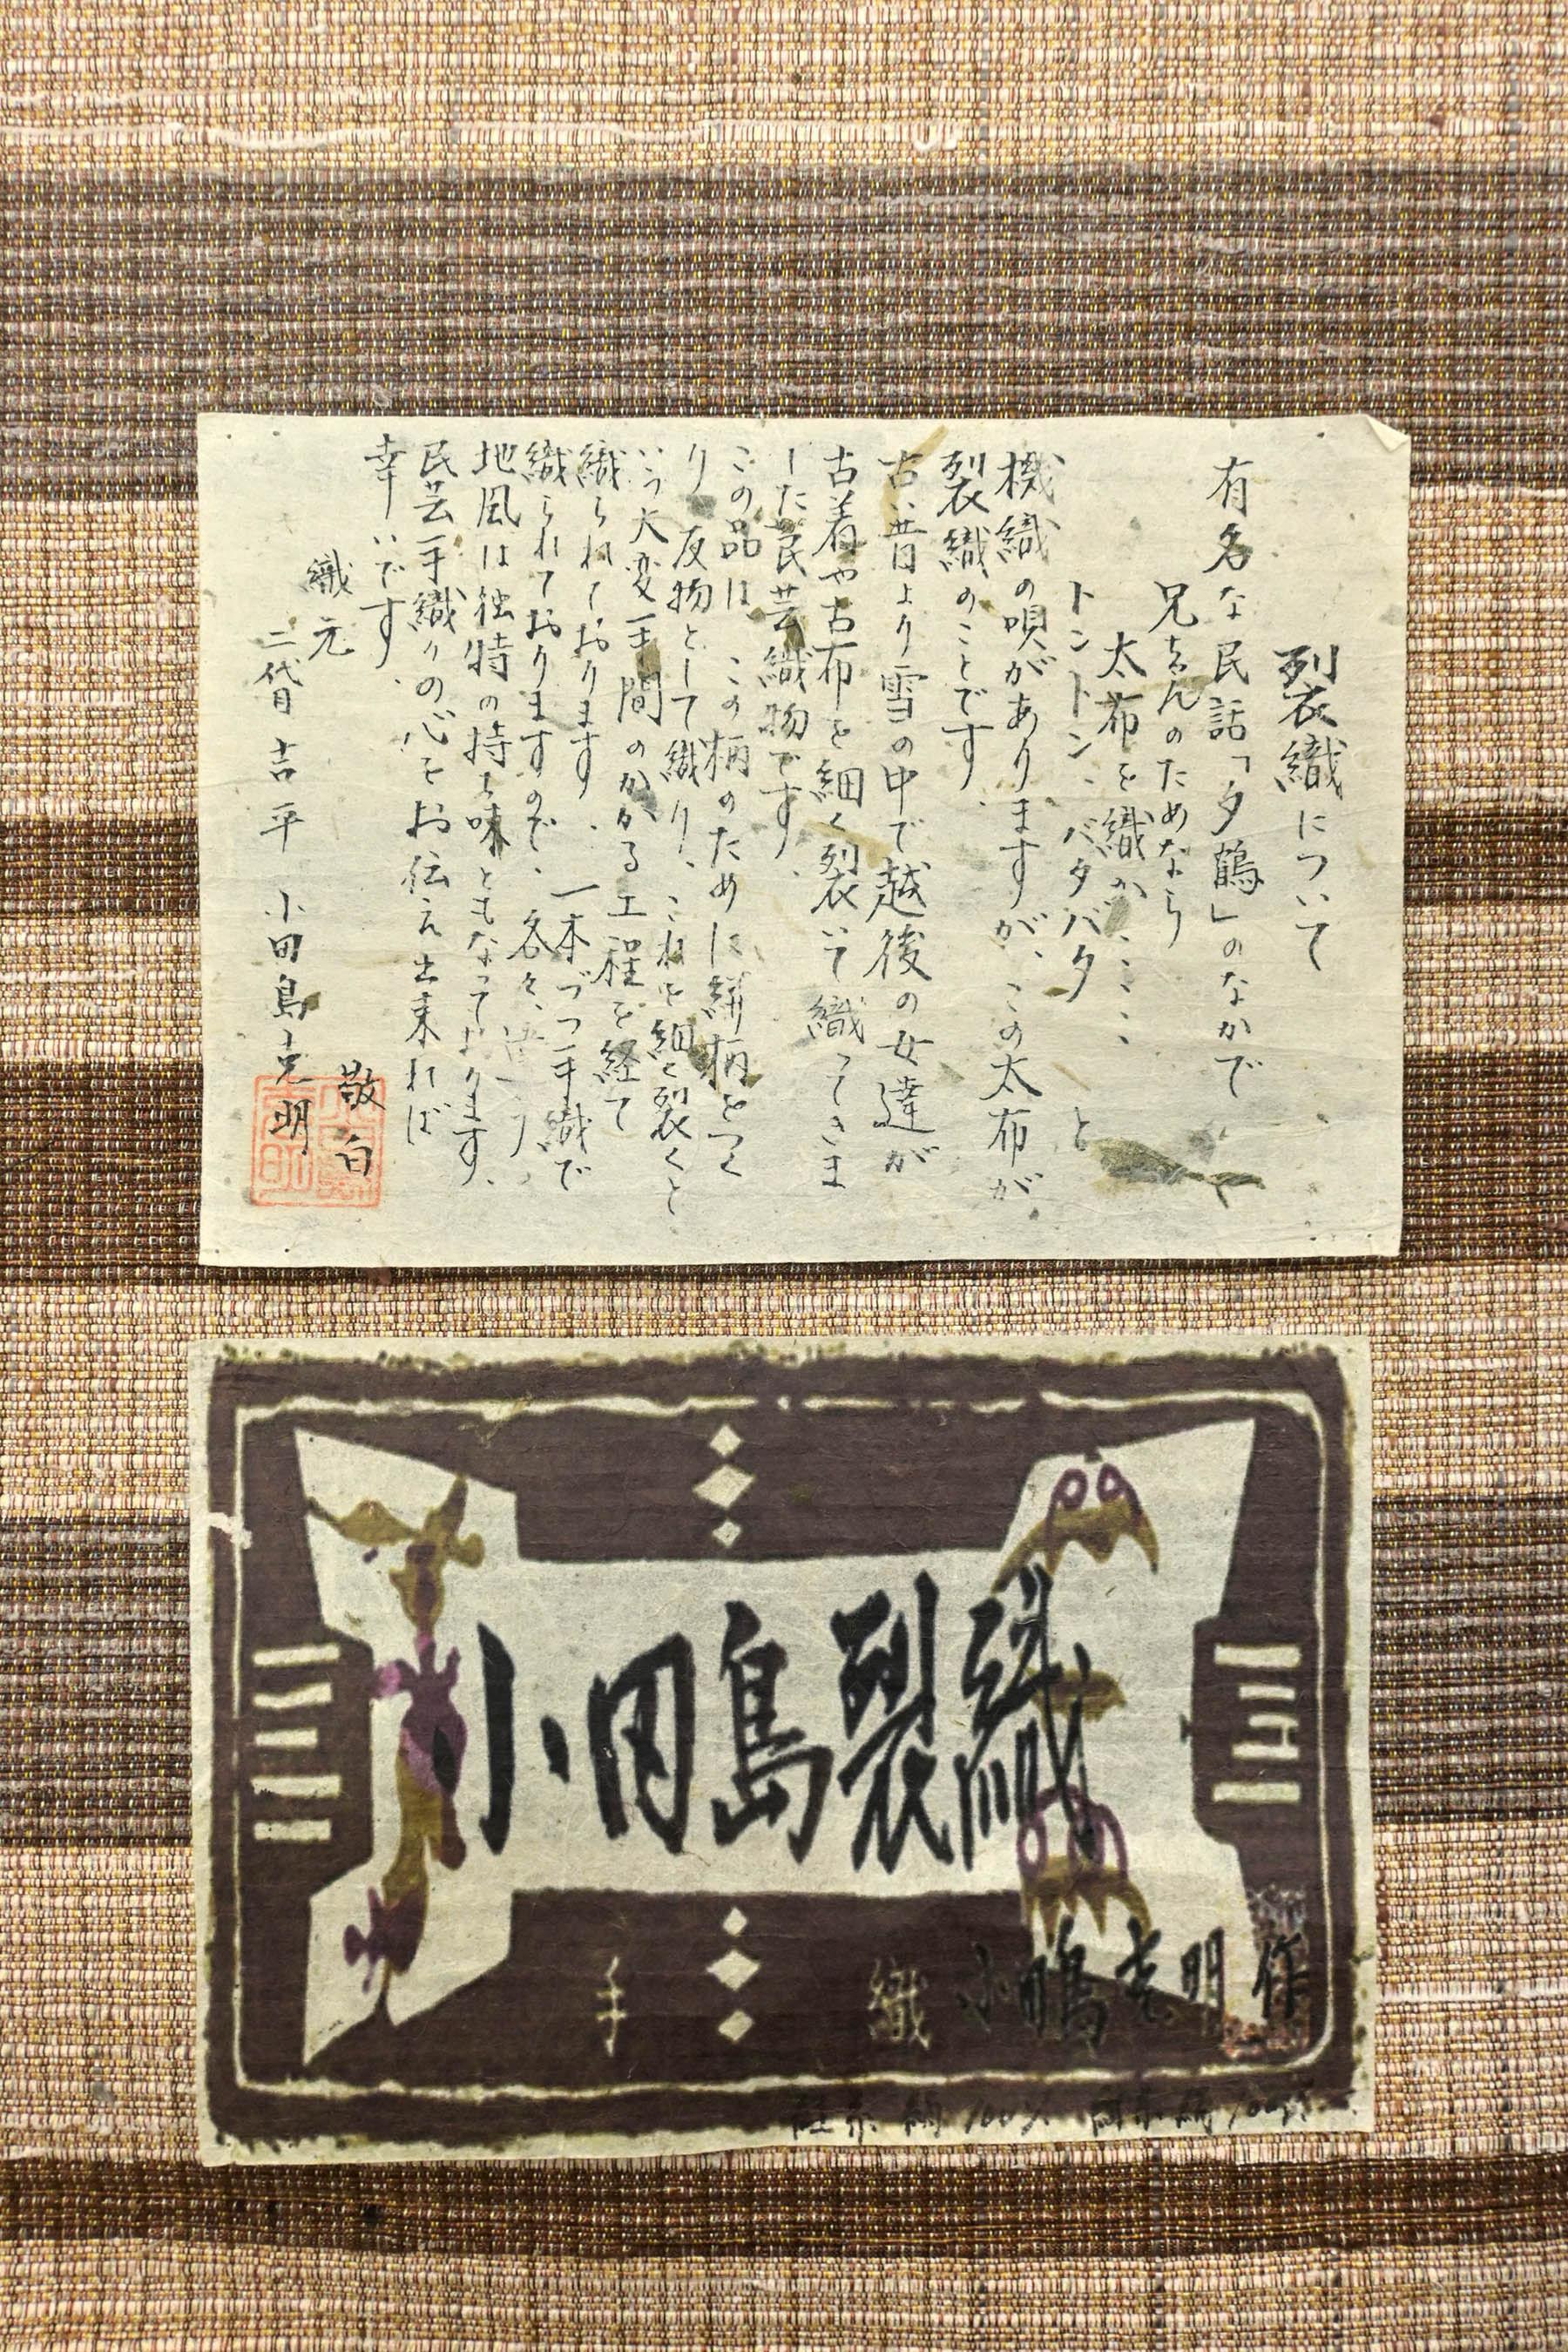 裂織について
有名な民話「夕鶴」のなかで
兄さんのためなら
太布を織か・・・
トントン、バタバタ と
機織の唄がありますが、この太布が
裂織のことです。
古い昔より雪の中で越後の女達が
古着や古布を細く裂いて織ってきま
した民芸織物です。
この品は、この柄のために絣柄をつく
り、反物として織り、これを細く裂くと
いう大変手間のかかる工程を経て
織られております。一本づつ手織で
織られておりますので、各々、違う、
地風は独特の持ち味ともなっております。
民芸手織りの心をお伝え出来れば
幸いです。
敬白
織元
二代目 吉平 小田島克明
小田島裂織
手 織
小田島克明 作
経糸 綿 100% 緯糸 綿 100%